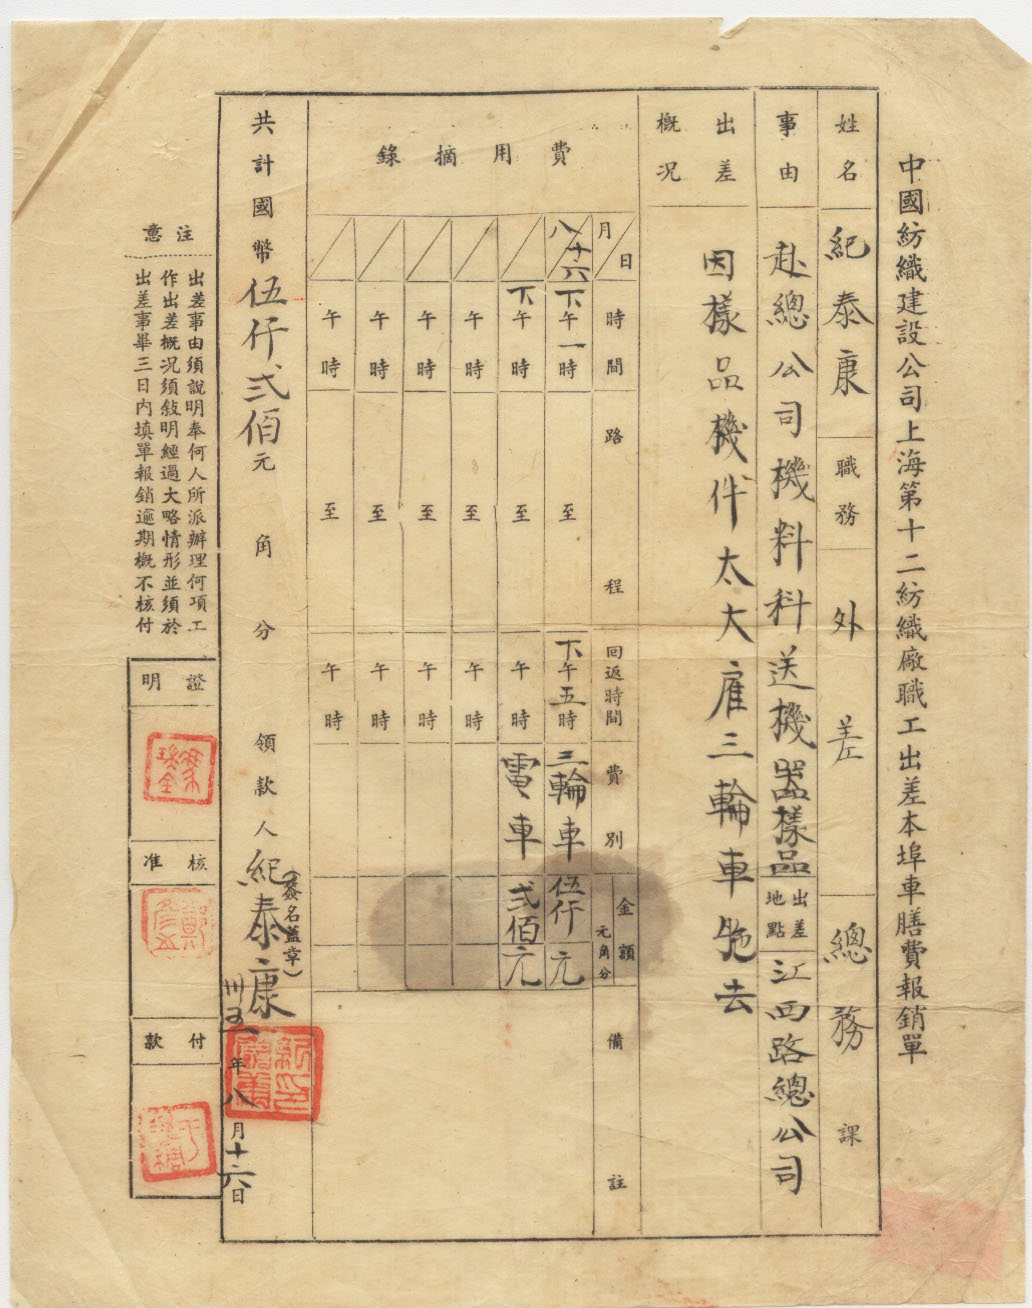 中國紡織建設公司上海第十二紡織廠職工出差本埠車膳費報銷單
姓名 紀泰康 職務 外差 總務課
事由 赴總公司機料科送機器樣品 出差地點 江西路總公司
出差概況 因樣品機件太大雇三輪車拖去
費用摘錄
月 日 時間 路程 回返時間 費別 金額 元角分 備註
八 十六 下午一時 至 下午五時 三輪車 伍仟元
下午 時 至 午 時 電車 弍佰元
午 時 至 午 時
午 時 至 午 時
午 時 至 午 時
午 時 至 午 時
共計國幣伍仟弍佰元 角 分 領款人 紀泰康 (簽名蓋章)
年八月十六日
注意
出差事由須說明奉何人所派辦理何項工
作出差概況須敍明經過大略情形並須於
出差事畢三日內填單報銷逾期概不核付
證明
核准
付款